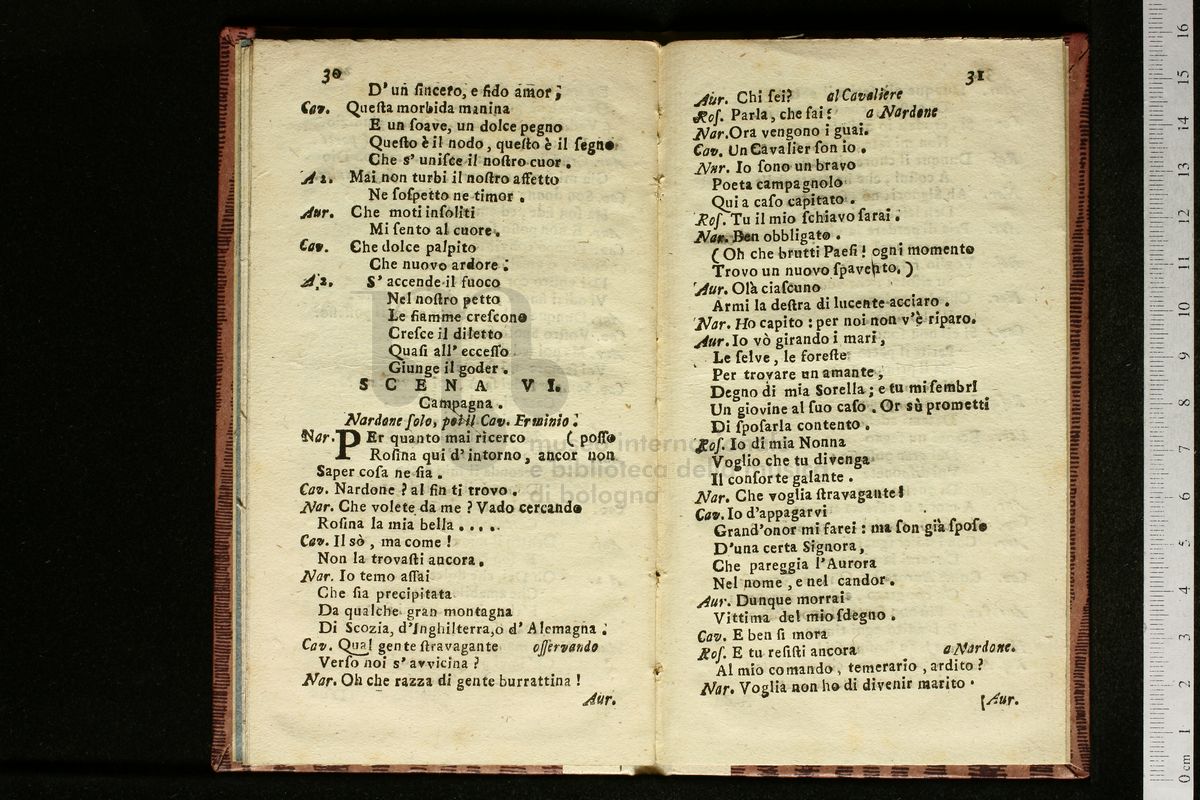 30
D' un ſincero, e fido amor;
Cav. Queſta morbida manina
E un ſoave, un dolce pegno
Queſto è il nodo, queſto è il ſegno
Che s' uniſce il noſtro cuor.
A 2. Mai non turbi il noſtro affetto
Ne ſoſpetto ne timor.
Aur. Che moti inſoliti
Mi ſento al cuore.
Cav. Che dolce palpito
Che nuovo ardore:
A 2. S' accende il fuoco
Nel noſtro petto
Le fiamme creſcono
Creſce il diletto
Quaſi all' ecceſſo
Giunge il goder.
SCENA VI.
Campagna.
Nardone ſolo, poi il Cav. Erminio.
Nar. PEr quanto mai ricerco (poſſo
Roſina qui d' intorno, ancor non
Saper coſa ne ſia.
Cav. Nardone? al fin ti trovo.
Nar. Che volete da me? Vado cercando
Roſina la mia bella.....
Cav. Il sò, ma come!
Non la trovaſti ancora.
Nar. Io temo aſſai
Che ſia precipitata
Da qualche gran montagna
Di Scozia, d'Inghilterra, o d' Alemagna.
Cav. Qual gente ſtravagante oſſervando
Verſo noi s' avvicina?
Nar. Oh che razza di gente burrattina!
Aur.
31
Aur. Chi ſei? al Cavaliere
Roſ. Parla, che fai? a Nardone
Nar. Ora vengono i guai.
Cav. Un Cavalier ſon io.
Nar. Io ſono un bravo
Poeta campagnolo
Qui a caſo capitato.
Roſ. Tu il mio ſchiavo ſarai.
Nar. Ben obbligato.
(Oh che brutti Paeſi! ogni momento
Trovo un nuovo ſpavento.)
Aur. Olà ciaſcuno
Armi la deſtra di lucente acciaro.
Nar. Ho capito: per noi non v'è riparo.
Aur. Io vò girando i mari,
Le ſelve, le foreſte
Per trovare un amante,
Degno di mia Sorella; e tu mi ſembri
Un giovine al ſuo caſo. Or sù prometti
Di ſpoſarla contento.
Roſ. Io di mia Nonna
Voglio che tu divenga
Il conſorte galante.
Nar. Che voglia ſtravagante!
Cav. Io d'appagarvi
Grand'onor mi farei: ma ſon già ſpoſo
D'una certa Signora,
Che pareggia l'Aurora
Nel nome, e nel candor.
Aur. Dunque morrai
Vittima del mio ſdegno.
Cav. E ben ſi mora
Roſ. E tu reſiſti ancora a Nardone.
Al mio comando, temerario, ardito?
Nar. Voglia non ho di divenir marito.
Aur.
museo internazionale
e biblioteca della musica
di bologna
0 cm 1 2 3 4 5 6 7 8 9 10 11 12 13 14 15 16